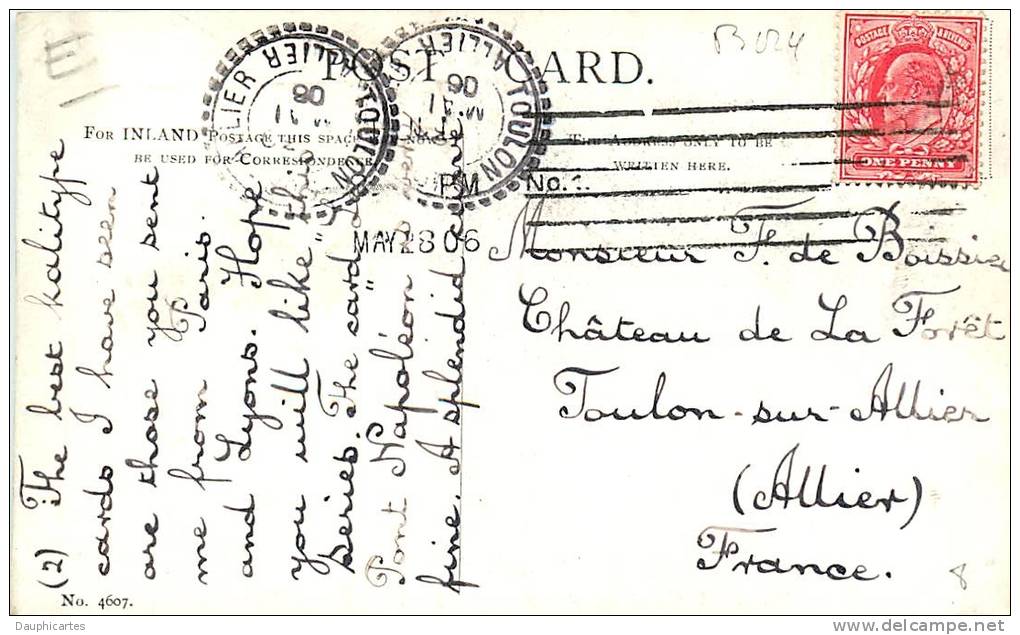 POST CARD.
FOR INLAND POSTAGE THIS SPACE NOW
BE USED FOR CORRESPONDENCE
THE ADDRESS ONLY TO BE
WRITTEN HERE.
POSTAGE REVENUE
ONE PENNY
TOULON ALLIER
31
06
TOULON ALLIER
31
06
PM No. 1.
MAY 28 06
(2) The best kalitype
cards I have seen
are those you sent
me from Paris.
and Lyons. Hope
you will like this
series. The card
"Pont Napoléon" is
fine. A splendid
Monsieur F. de Boissieu
Château de La Forêt
Toulon-sur-Allier
(Allier)
France.
8
No. 4607.
Dauphicartes
www.delcampe.net